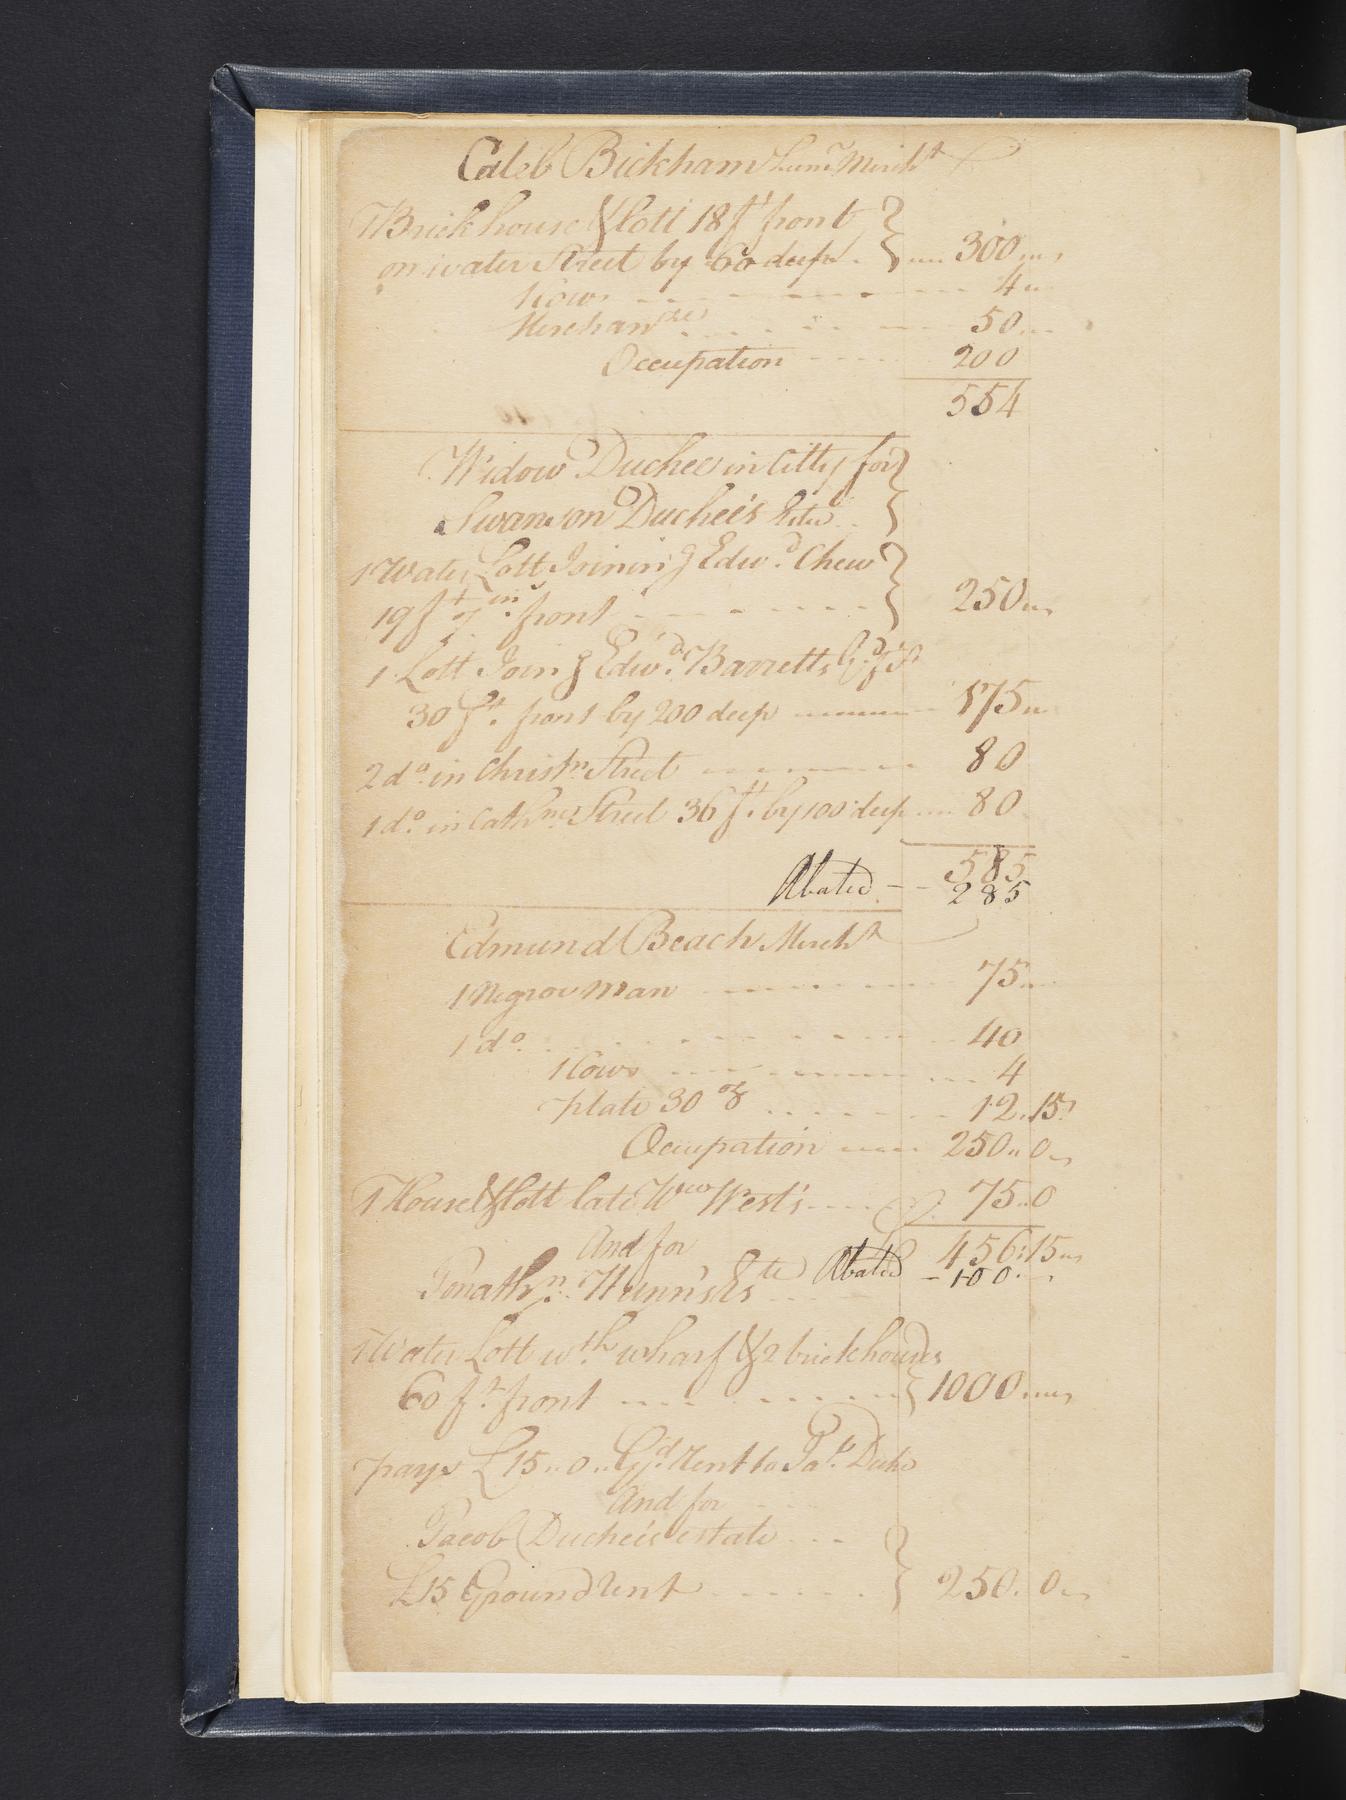 Caleb Bickham Lumr Mercht
1 Brick house & lott 18 ft front
on water Street by 60 deep .. 300
1 Cow 4
Merchandze 50
Occupation 200
554
Widow Duchee in Citty for
Swanson Duchee's Este
1 Water Lott Joining Edwd. Chew
19 ft 7 in front 250
1 Lott Joing Edwd. Barretts
30 ft. front by 200 deep 175
2 do. in Christn. Street 80
1 do. in Cathne Street 36 ft. by 100 deep 80
585
Abated -- 285
Edmund Beach Mercht
1 Negroe Man 75
1 do. 40
1 Cow 4
plate 30 oz 12.15
Occupation 250.. 0
1 House & lott late Wew West's 75..0
456:15
And for Abated - 100
Jonathn. Hunn's Este
1 Water Lott wth. wharf & 2 brick houses
60 ft. front 1000
pays £15..0.. Gd. Rent to Jab. Duche
And for
Jacob Duchee's estate
£15 Ground rent 250. 0